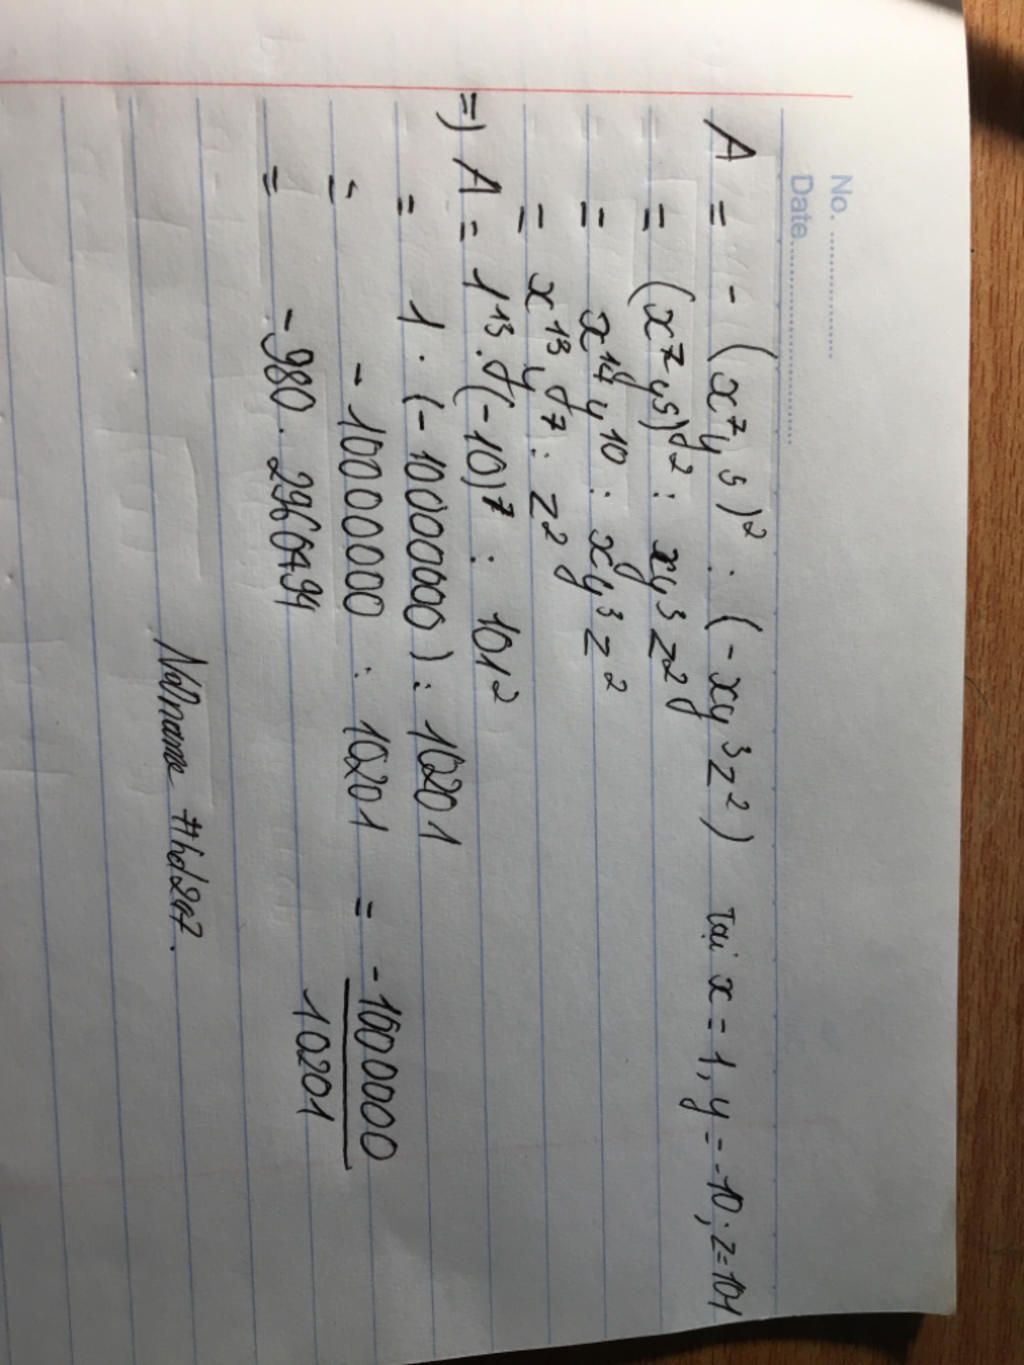 No. ................
Date ................
A = - (x⁷y⁵)² : (- xy³z²) tại x = 1, y = -10; z = 101
= (x⁷y⁵)² : xy³z²
= x¹⁴y¹⁰ : xy³z²
= x¹³.y⁷ : z²
=) A = 1¹³.(-10)⁷ : 101²
= 1 . (- 10000000) : 10201
= - 10000000 : 10201 = -1000000/10201
= - 980. 296 0494